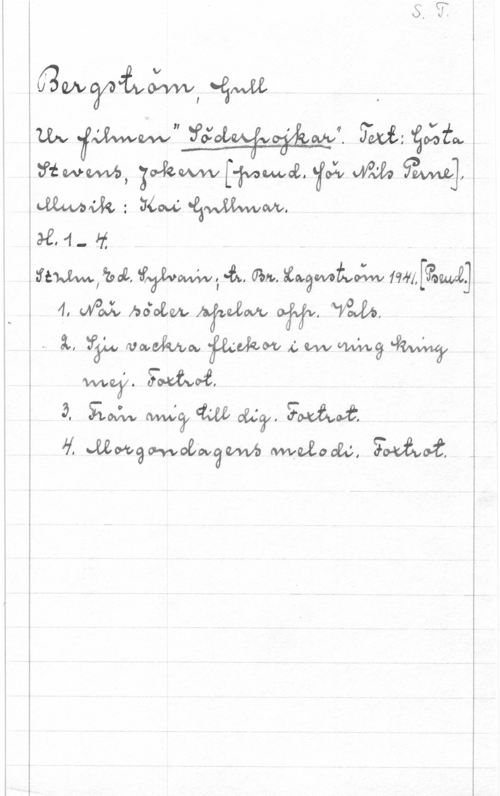 S. T.
Bergström, Gull
Ur filmen "Söderpojkar". Text: Gösta
Stevens, Jokern [pseud. för Nils Perne].
Musik: Kai Gullmar.
H. 1-4.
Sthlm, Ed. Sylvain; tr. Br. Lagerström 1941. [Pseud.]
1. När söder spelar opp. Vals.
2. Sju vackra flickor i en ring kring
mej. Foxtrot.
3. Från mig till dig. Foxtrot.
4. Morgondagens melodi. Foxtrot.